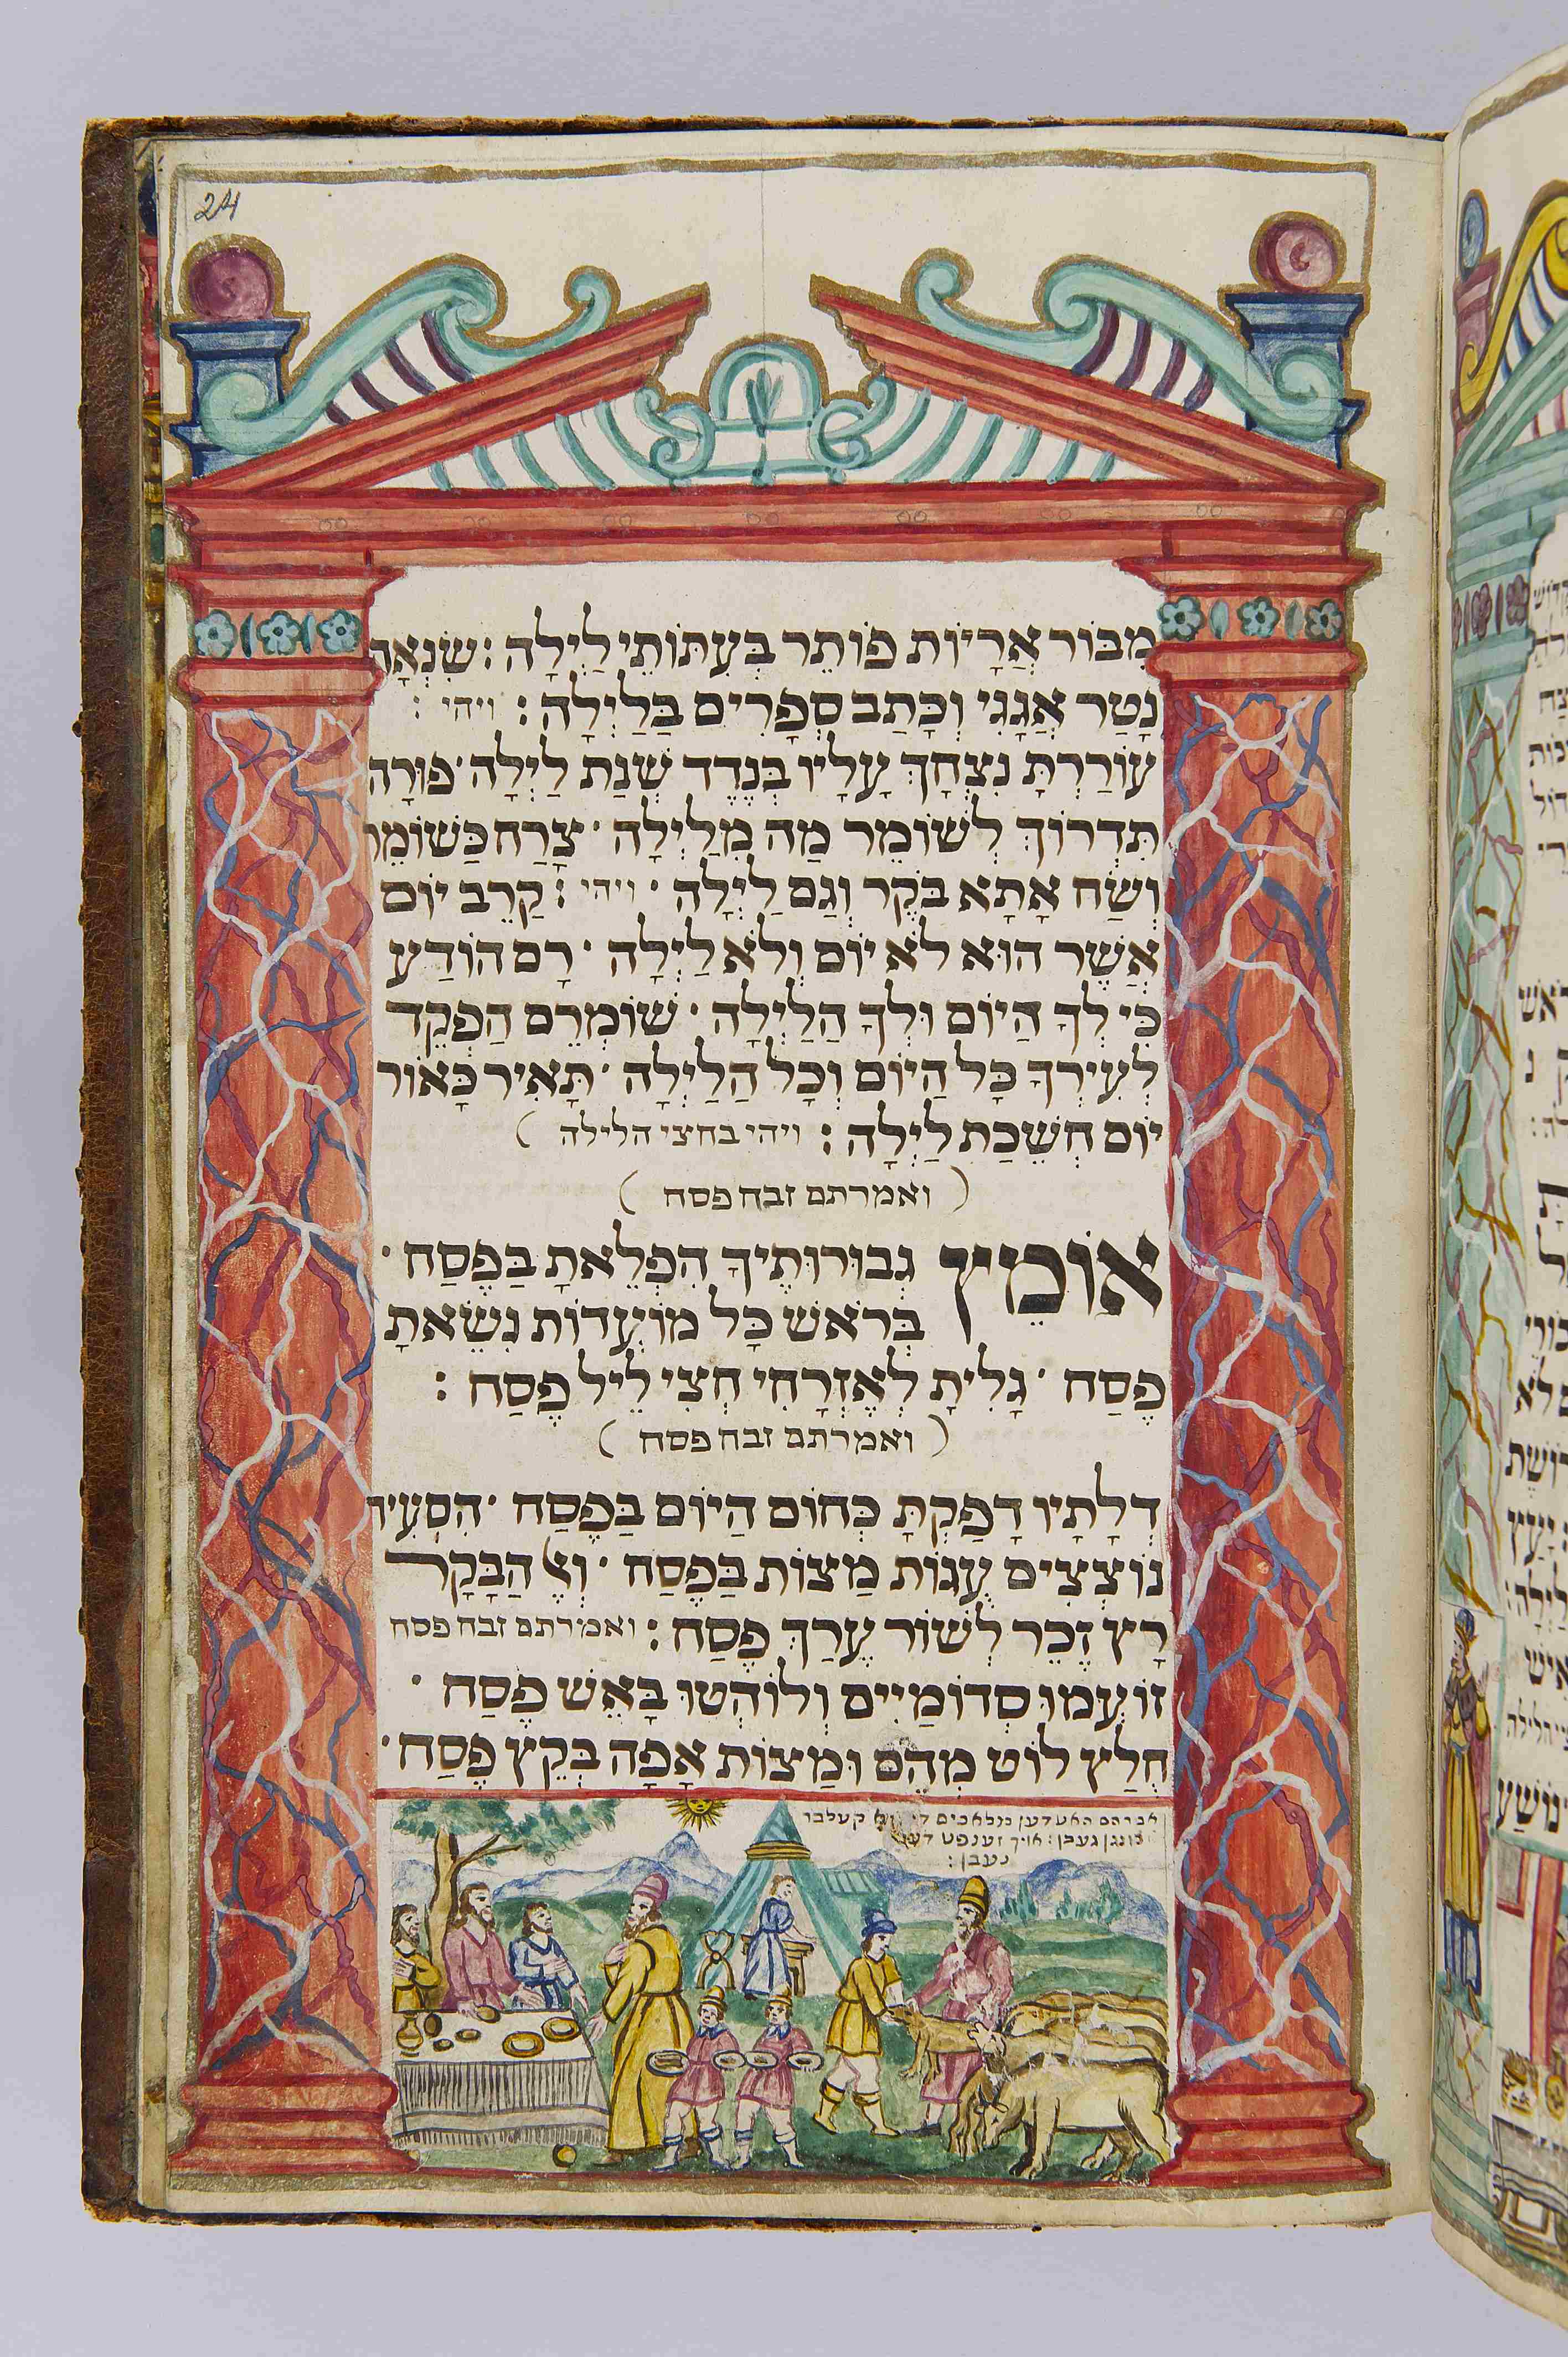 24
מִבּוֹר אֲרָיוֹת פּוֹתֵר בְּעִתּוֹתֵי לַיְלָה : שִׂנְאָה
נָטַר אֲגָגִי וְכָתַב סְפָרִים בַּלַיְלָה : ויהי :
עוֹרַרְתָּ נִצְחָךְ עָלָיו בְּנֶדֶד שְׁנַת לַיְלָה · פּוּרָה
תִּדְרוֹךְ לְשׁוֹמֵר מַה מִלַיְלָה · צָרַח כַּשׁוֹמֵר
וְשָׂח אָתָא בֹּקֶר וְגַם לַיְלָה · ויהי : קָרֵב יוֹם
אֲשֶׁר הוּא לֹא יוֹם וְלֹא לַיְלָה · רָם הוֹדַע
כִּי לְךָ הַיּוֹם וּלְךָ הַלַּיְלָה · שׁוֹמְרִם הַפְקֵד
לְעִירְךָ כָּל הַיּוֹם וְכָל הַלַיְלָה · תָּאִיר כָּאוֹר
יוֹם חֶשְׁכַת לַיְלָה : ויהי בחצי הלילה )
( ואמרתם זבח פסח )
אוֹמֶץ גְּבוּרוֹתֶיךָ הִפְלֵאתָ בַּפֶּסַח ·
בְּרֹאשׁ כָּל מוֹעֲדוֹת נִשֵּׂאתָ
פֶּסַח · גָּלִיתָ לְאֶזְרָחִי חֲצִי לֵיל פֶּסַח :
( ואמרתם זבח פסח )
דְּלָתָיו דָּפַקְתָּ כְּחוֹם הַיּוֹם בַּפֶּסַח · הִסְעִיד
נוֹצְצִים עֻגוֹת מַצוֹת בַּפֶּסַח · וְאֶל הַבָּקָר
רָץ זֵכֶר לְשׁוֹר עֵרֶךְ פֶּסַח : ואמרתם זבח פסח
זוֹעֲמוּ סְדוֹמִיִּים וְלוֹהֲטוּ בָּאֵשׁ פֶּסַח ·
חֻלַּץ לוֹט מֵהֶם וּמַצוֹת אָפָה בְּקֵץ פֶּסַח ·
אברהם האט דען מלאכים קעלבר
צונגן געבן : אויך זענפט
נעבן :